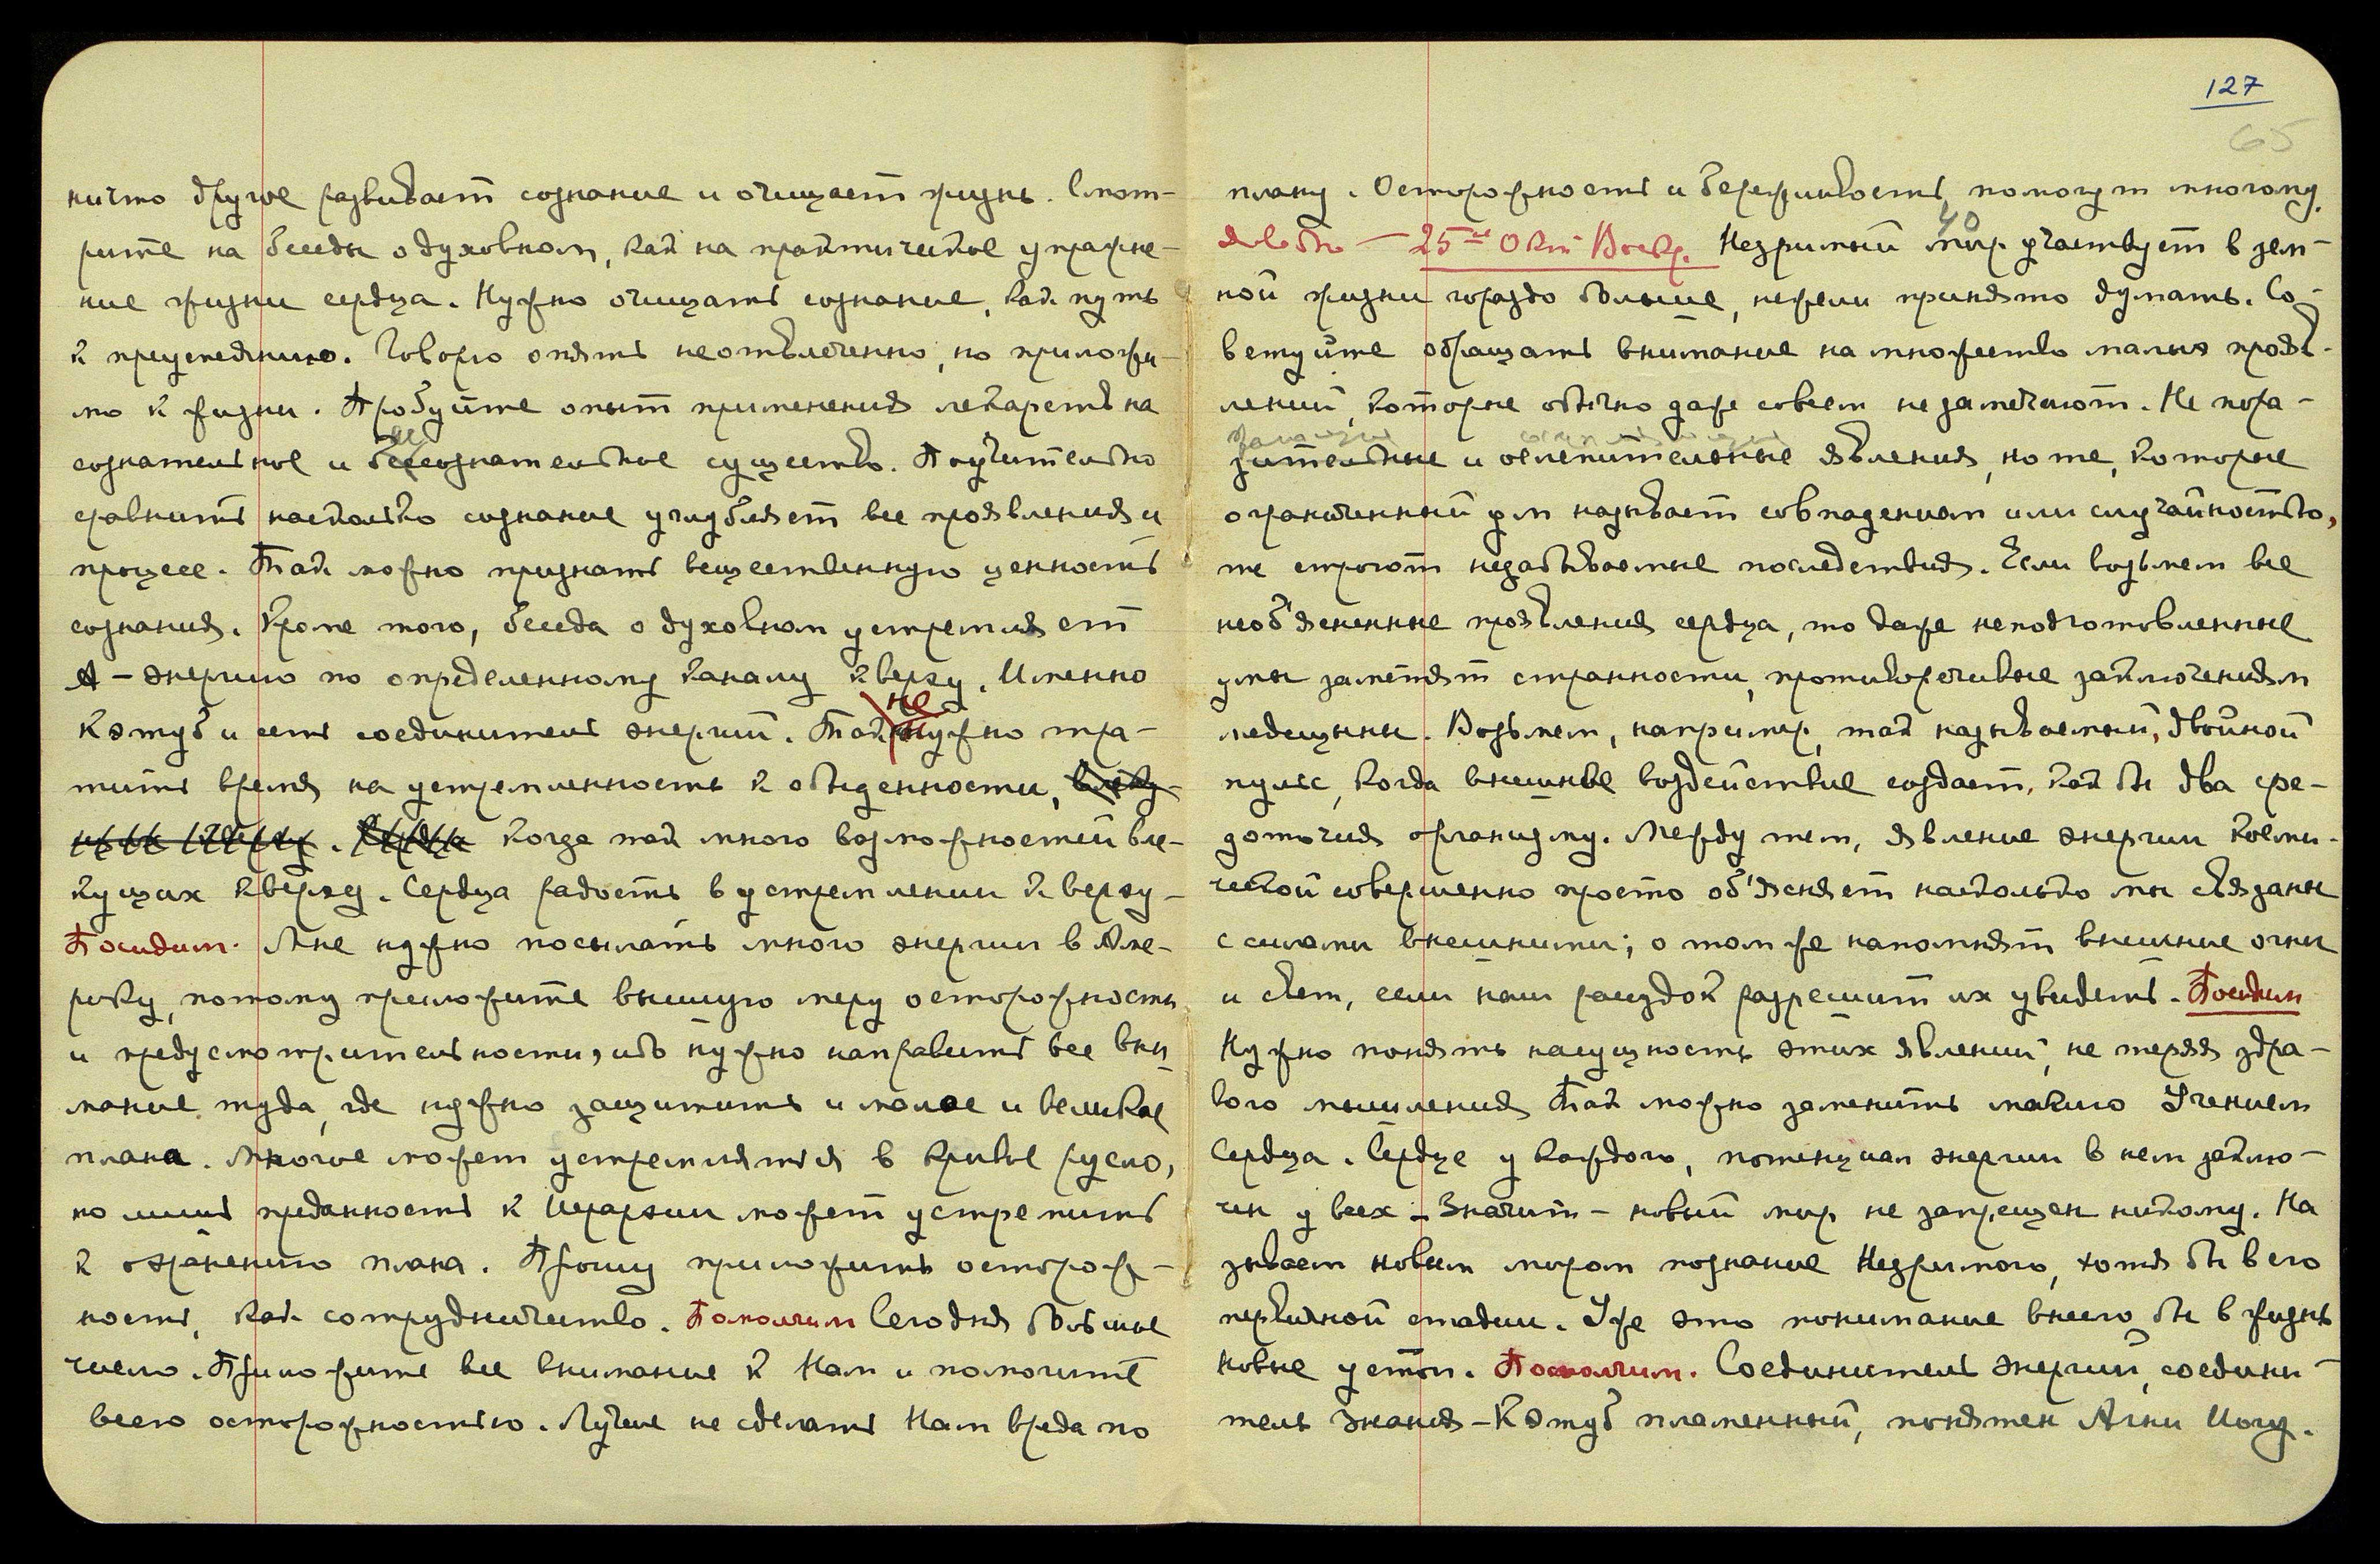 ничто другое развивает сознание и очищает жизнь. Смот-
рите на беседы о духовном, как на практическое упражне-
ние жизни сердца. Нужно очищать сознание, как путь
к преуспеянию. Говорю опять неотвлеченно, но приложи-
мо к жизни. Пробуйте опыт применения лекарств на
сознательное и бессознательное существо. Поучительно
сравнить насколько сознание углубляет все проявления и
процесс. Так можно признать вещественную ценность
сознания. Кроме того, беседа о духовном устремляет
А – энергию по определенному каналу кверху. Именно
Кэтуб и есть соединитель энергий. Так не нужно тра-
тить время на устремленность к обыденности,
когда так много возможностей вле-
кущих кверху. Сердца радость в устремлении кверху –
Посидим. Мне нужно посылать много энергии в Аме-
рику, потому приложите высшую меру осторожности
и предусмотрительности, ибо нужно направить все вни-
мание туда, где нужно защитить и малое и великое
плана. Многое может устремляться в кривое русло,
но лишь преданность к Иерархии может устремить
к охранению плана. Прошу приложить осторож-
ность, как сотрудничество. Помолчим Сегодня большое
число. Приложите все внимание к Нам и помогите
всею осторожностью. Лучше не сделать Нам вреда по
127
65
плану. Осторожность и бережливость помогут многому.
Довольно – 25-ое Окт Воскр. Незримый мир участвует в зем-
40
ной жизни гораздо больше, нежели принято думать. Со-
ветуйте обращать внимание на множество малых прояв-
лений, которые обычно даже совсем не замечают. Не пора-
зительные и ослепительные явления, но те, которые
ограниченный ум называет совпадением или случайностью,
те строют незабываемые последствия. Если возьмем все
необ'ясненные проявления сердца, то даже неподготовленные
умы заметят странности, противоречивые заключениям
медецыны. Возьмем, например, так называемый, двойной
пульс, когда внешнее воздействие создает, как бы два сре-
доточия организму. Между тем, явление энергии косми-
ческой совершенно просто об'ясняет насколько мы связаны
с силами внешними; о том же напомнят внешние огни
и свет, если наш рассудок разрешит их увидеть. Посидим
Нужно понять насущность этих явлений, не теряя здра-
вого мышления Так можно заменить магию Учением
Сердца. Сердце у каждого, потенциал энергии в нем заклю-
чен у всех – Значит – новый мир не запрещен никому. На
зываем новым миром познание Незримого, хотя бы в его
первичной стадии. Уже это понимание внесло бы в жизнь
новые устои. Помолчим. Соединитель Энергий, соедини-
тель Знания – Кэтуб пламенный, понятен Агни Йогу.